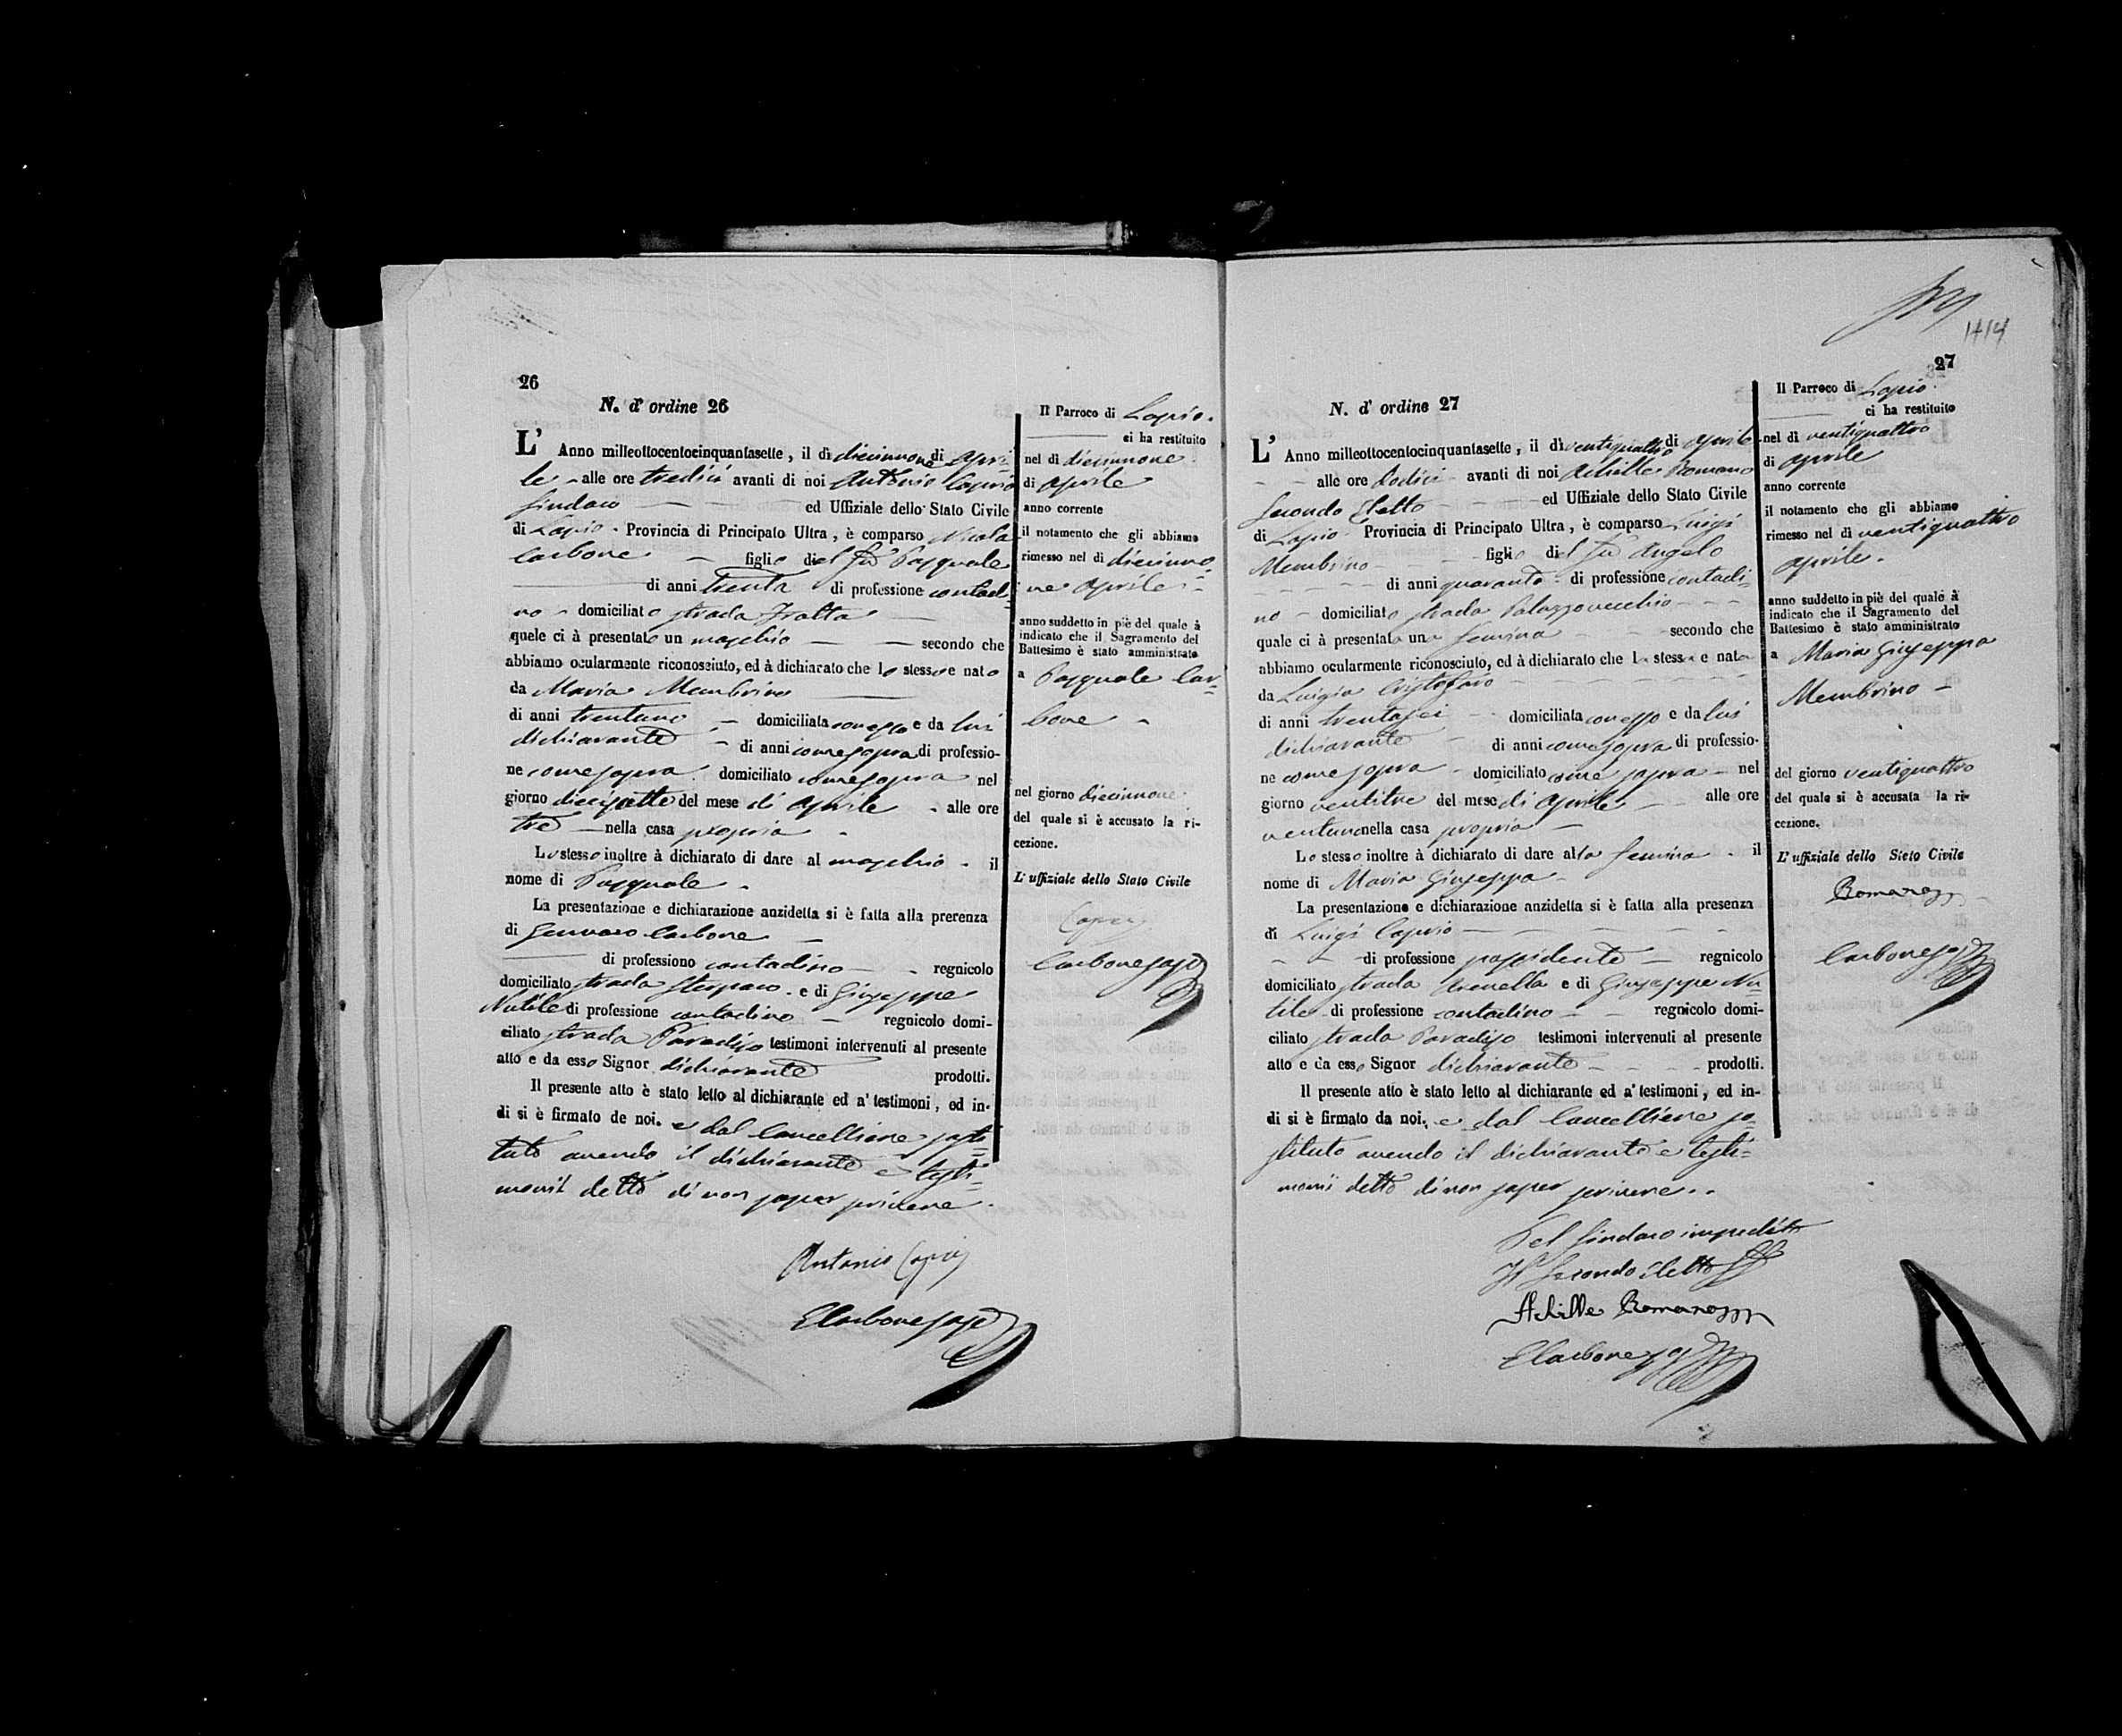 26
N. d' ordine 26
L' Anno milleottocentocinquantasette, il dì diecinnove di Apri=
le - alle ore tredici avanti di noi Antonio Caprio
Sindaco ed Uffiziale dello Stato Civile
di Lapio - Provincia di Principato Ultra, è comparso Nicola
Carbone figlio del fu Pasquale
di anni trenta di professione contadi=
no - domiciliato strada Fratta
quele ci à presentato un maschio secondo che
abbiamo ocularmente riconosciuto, ed à dichiarato che lo stesso e nato
da Maria Membrino
di anni trentuno domiciliata con esso e da lui
dichiarante di anni come sopra di professio-
ne come sopra domiciliato come sopra nel
giorno diecisette del mese di Aprile alle ore
tre nella casa propria
Lo stesso inoltre à dichiarato di dare al maschio il
nome di Pasquale
La presentazione e dichiarazione anzidetta si è fatta alla prerenza
di Gennaro Carbone
di professiono contadino regnicolo
domiciliato strada e di Giuseppe
Nutile di professione contadino regnicolo domi-
ciliato strada Paradiso testimoni intervenuti al presente
atto e da esso Signor dichiarante prodotti.
Il presente atto è stato letto al dichiarante ed a' testimoni, ed in-
di si è firmato de noi. e dal Cancelliere sosti=
tuto avendo il dichiarante e testi=
monii detto di non saper scrivere.
Antonio Caprio
E Carbone sost
Il Parroco di Lapio.
ci ha restituito
nel dì diecinnove
di Aprile
anno corrente
il notamento che gli abbiamo
rimesso nel dì diecinno=
ve Aprile
anno suddetto in piè del quale à
indicato che il Sagramento del
Battesimo è stato amministrato
a Pasquale Car=
bone
nel giorno diecinnove
del quale si è accusato la ri-
cezione.
L' uffiziale dello Stato Civile
Caprio
Carbone sost
1414
27
N. d' ordine 27
L' Anno milleottocentocinquantasette, il dì ventiquattro di Aprile
alle ore dodici avanti di noi Achille Romano
Secondo Eletto ed Uffiziale dello Stato Civile
di Lapio Provincia di Principato Ultra, è comparso Luigi
Membrino figlio del fu Angelo
di anni quaranta di professione contadi=
no - domiciliato strada Palazzovecchio
quale ci à presentata una femina secondo che
abbiamo ocularmente riconosciuto, ed à dichiarato che la stessa e nata
da Luigia Cristofaro
di anni trentasei domiciliata con esso e da lui
dichiarante di anni come sopra di professio-
ne come sopra domiciliato come sopra nel
giorno ventitre del mese di Aprile alle ore
ventuno nella casa propria
Lo stesso inoltre à dichiarato di dare alla femina il
nome di Maria Giuseppa
La presentazione e dichiarazione anzidetta si è fatta alla presenza
di Luigi Caprio
di professione possidente regnicolo
domiciliato strada Arenella e di Giuseppe Nu=
tile di professione contadino regnicolo domi-
ciliato strada Paradiso testimoni intervenuti al presente
atto e da esso Signor dichiarante prodotti.
Il presente atto è stato letto al dichiarante ed a' testimoni, ed in-
di si è firmato da noi, e dal Cancelliere so=
stituto avendo il dichiarante e testi=
monii detto di non saper scrivere.
Pel Sindaco impedito
Il Secondo Eletto
Achille Romano
E Carbone
Il Parroco di Lapio
ci ha restituito
nel dì ventiquattro
di Aprile
anno corrente
il notamento che gli abbiamo
rimesso nel dì ventiquattro
Aprile.
anno suddetto in piè del quale à
indicato che il Sagramento del
Battesimo è stato amministrato
a Maria Giuseppa
Membrino
del giorno ventiquattro
del quale si è accusata la ri-
cezione.
L' uffiziale dello Sieto Civile
Romano
Carbone